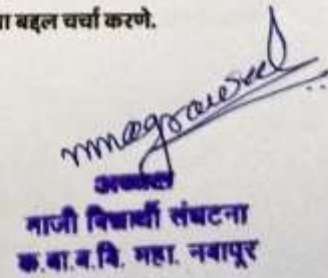 ा बद्दल चर्चा करणे.
अध्यक्ष
माजी विद्यार्थी संघटना
क.वा.व.वि. महा. नवापूर